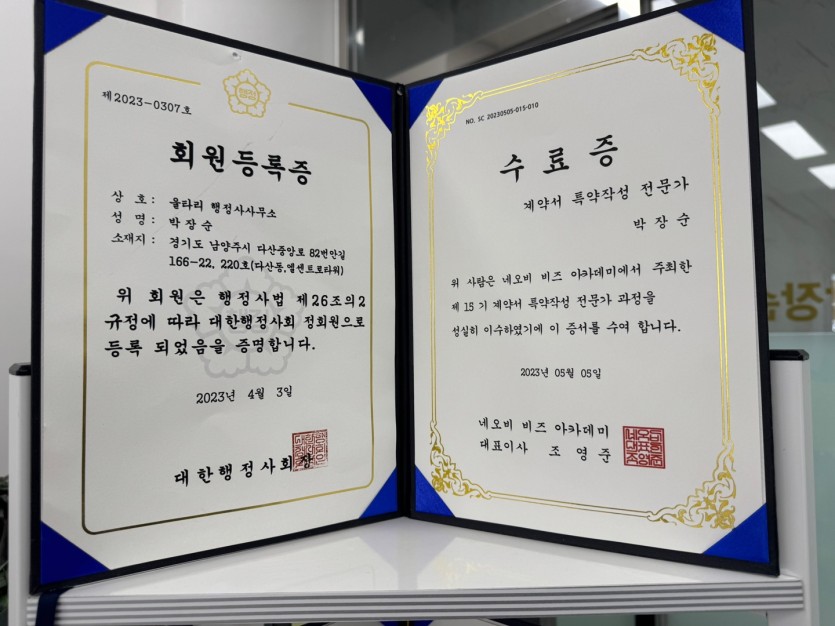 제2023-0307호
회원등록증
상 호 : 울타리 행정사사무소
성 명 : 박장순
소재지 : 경기도 남양주시 다산중앙로 82번안길
166-22, 220호(다산동,엘센트로타워)
위 회원은 행정사법 제26조의2
규정에 따라 대한행정사회 정회원으로
등록 되었음을 증명합니다.
2023년 4월 3일
대한행정사회장
NO. SC 20230505-015-010
수료증
계약서 특약작성 전문가
박장순
위 사람은 네오비 비즈 아카데미에서 주최한
제 15 기 계약서 특약작성 전문가 과정을
성실히 이수하였기에 이 증서를 수여 합니다.
2023년 05월 05일
네오비 비즈 아카데미
대표이사 조영준